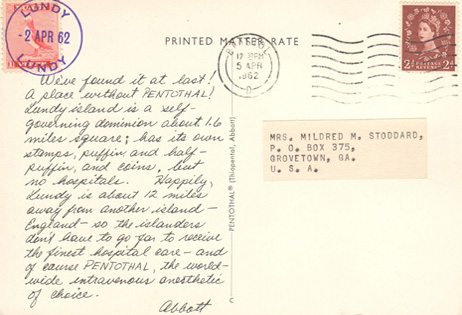 LUNDY
-2 APR 62
LUNDY
PRINTED MATTER RATE
12 PM
5 APR
1962
D
2d 2d
We've found it at last!
A place without PENTOTHAL!
Lundy island is a self-
governing dominion about 1.6
miles square; has its own
stamps, puffin and half-
puffin, and coins, but
no hospitals. Happily,
Lundy is about 12 miles
away from another island—
England—so the islanders
don't have to go far to receive
the finest hospital care—and
of cause PENTOTHAL, the world-
wide intravenous anesthetic
of choice.
Abbott
PENTOTHAL® (Thiopental, Abbott)
C
MRS. MILDRED M. STODDARD,
P. O. BOX 375,
GROVETOWN, GA.
U. S. A.